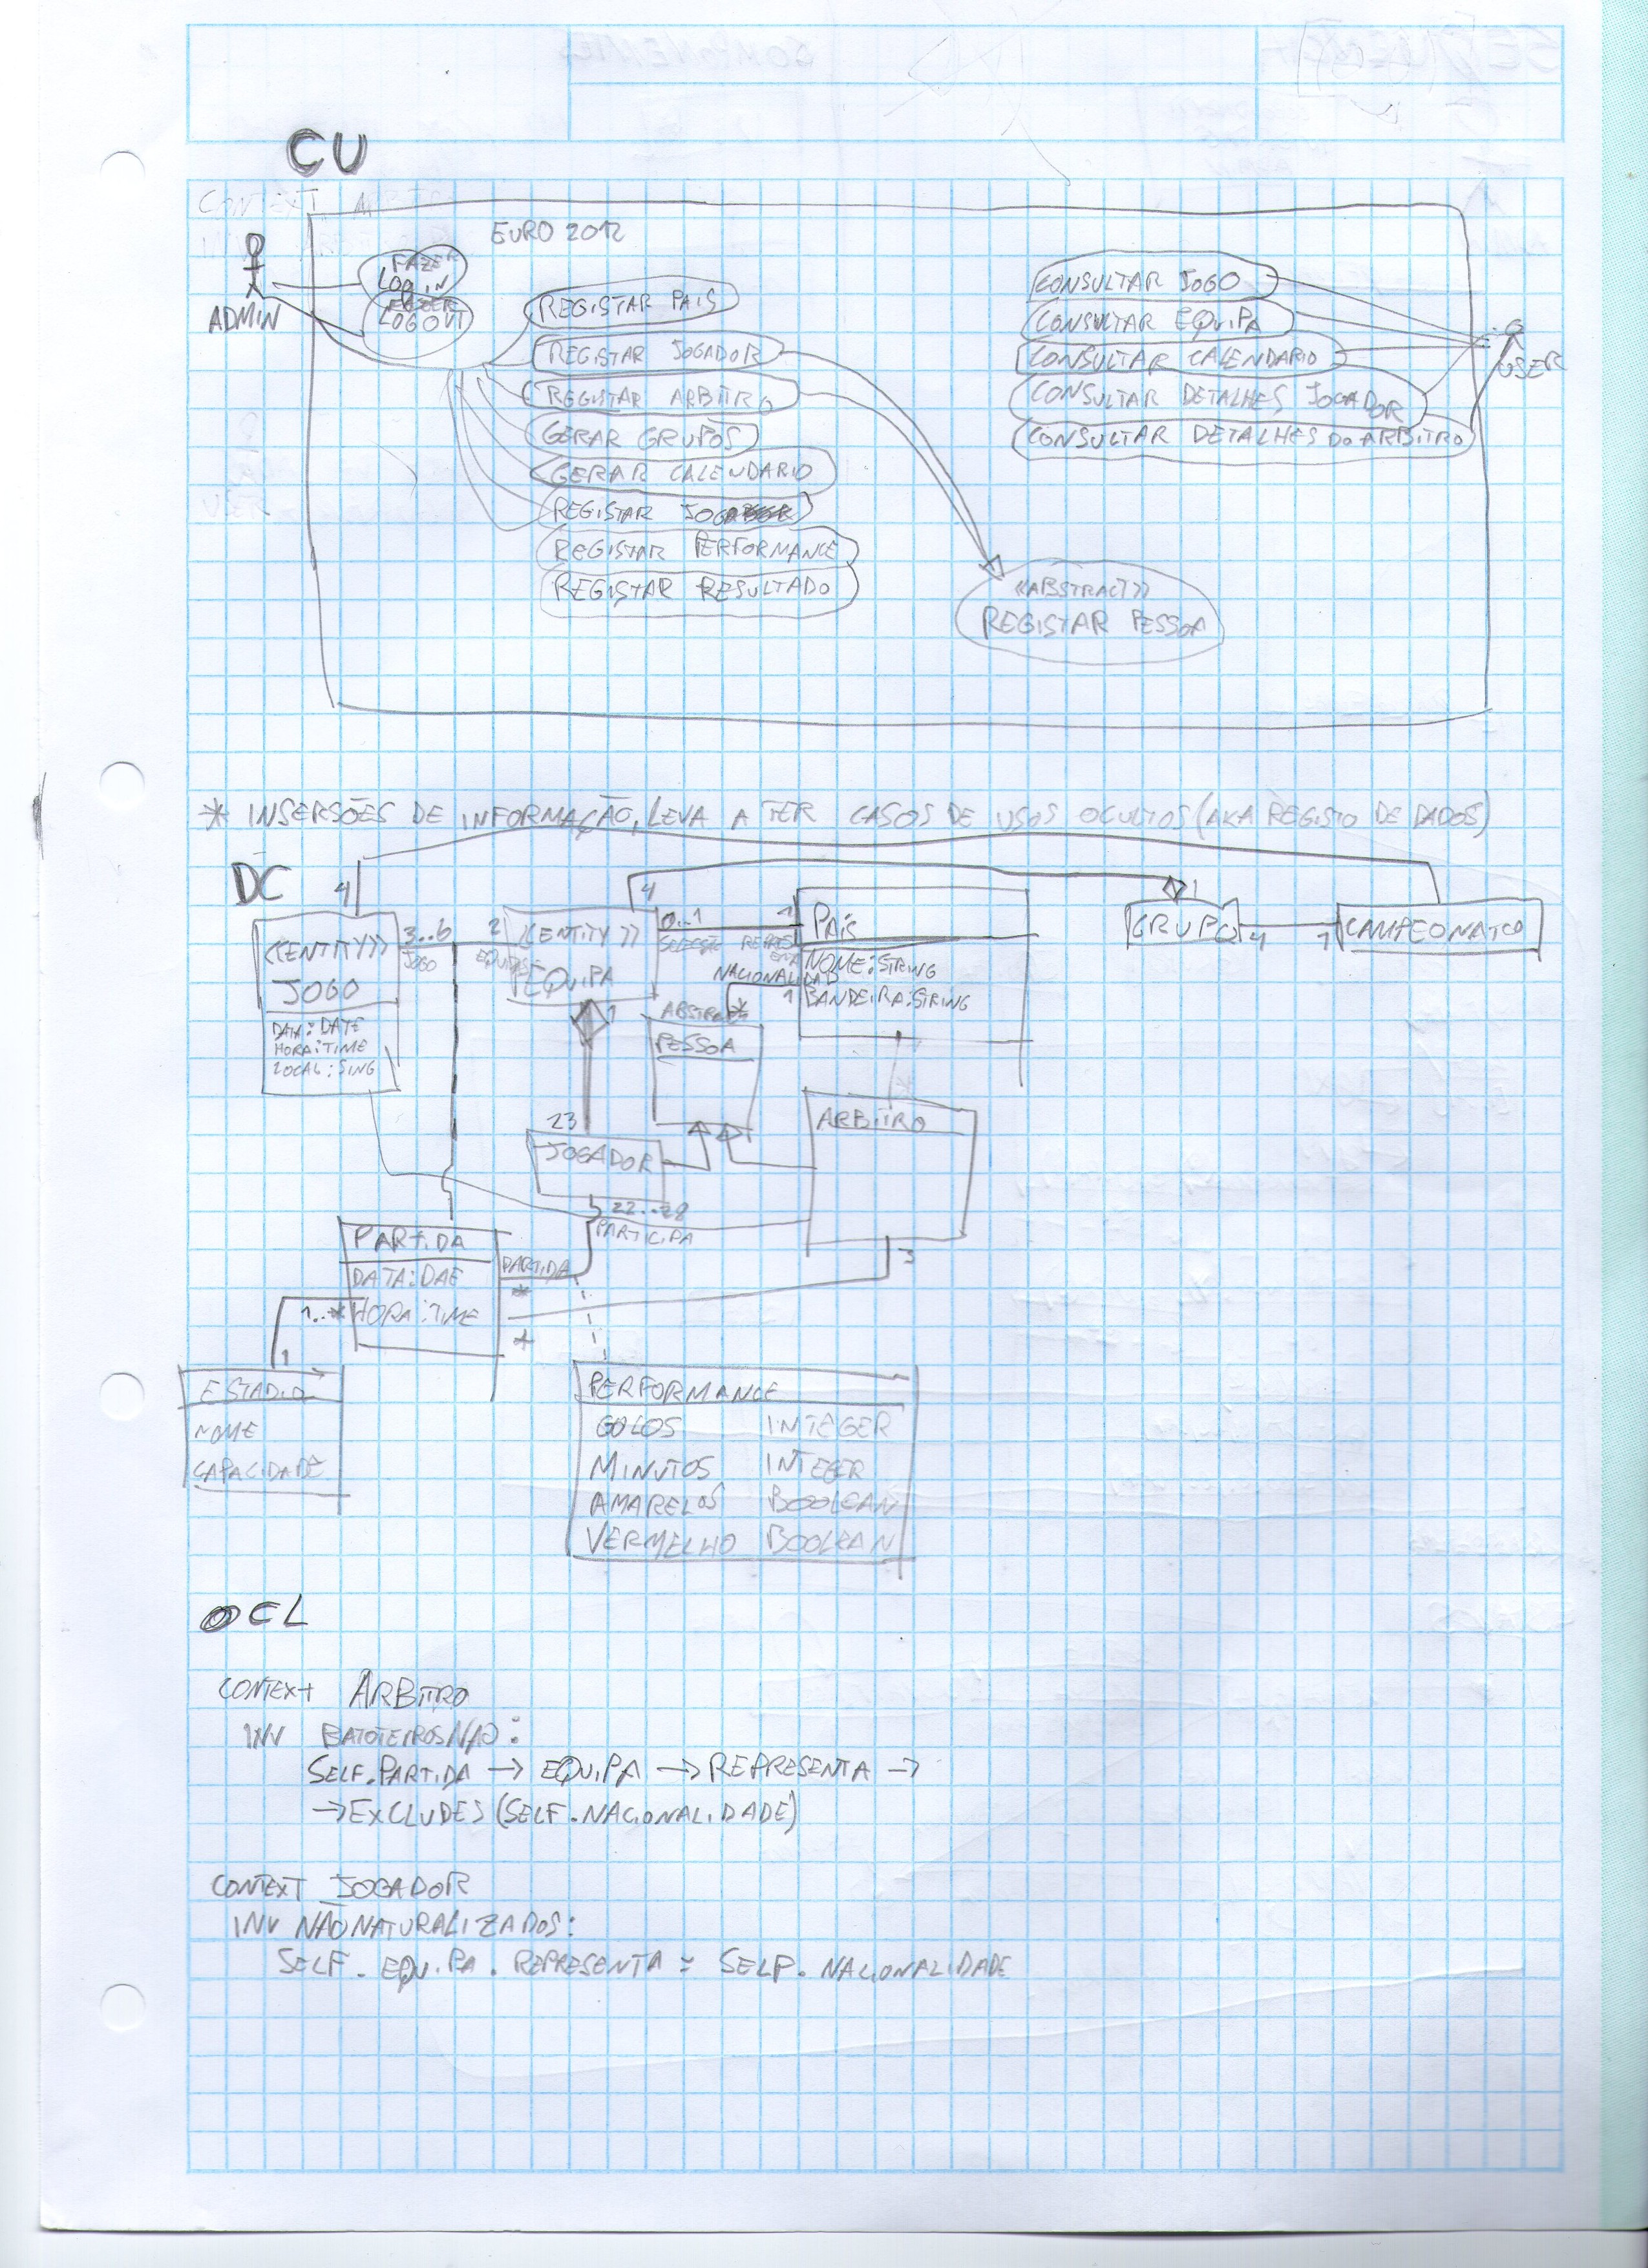 CU
EURO 2012
ADMIN
FAZER
LOG IN
FAZER
LOGOUT
REGISTAR PAIS
REGISTAR JOGADOR
REGISTAR ARBITRO
GERAR GRUPOS
GERAR CALENDARIO
REGISTAR JOGO
REGISTAR PERFORMANCE
REGISTAR RESULTADO
CONSULTAR JOGO
CONSULTAR EQUIPA
CONSULTAR CALENDARIO
CONSULTAR DETALHES JOGADOR
CONSULTAR DETALHES DO ARBITRO
USER
<<ABSTRACT>>
REGISTAR PESSOA
* INSERSÕES DE INFORMAÇÃO, LEVA A TER CASOS DE USOS OCULTOS (AKA REGISTO DE DADOS)
DC
4
<<ENTITY>>
JOGO
DATA: DATE
HORA: TIME
LOCAL: SING
3..6
JOGO
2
EQUIPAS
4
<<ENTITY>>
EQUIPA
0..1
SELECÇÃO
1
PAÍS
NOME: STRING
BANDEIRA: STRING
NACIONALIDAD
1
*
1
GRUPO
4
1
CAMPEONATO
1
23
JOGADOR
PESSOA
*
ARBITRO
3
22..28
PARTICIPA
PARTIDA
DATA: DAE
HORA: TIME
PARTIDA
*
*
1..*
1
ESTADIO
NOME
CAPACIDADE
PERFORMANCE
GOLOS INTEGER
MINUTOS INTEGER
AMARELOS BOOLEAN
VERMELHO BOOLEAN
OCL
CONTEXT ARBITRO
INV BATOTEIROSNAO:
SELF.PARTIDA -> EQUIPA -> REPRESENTA ->
-> EXCLUDES (SELF.NACIONALIDADE)
CONTEXT JOGADOR
INV NÃONATURALIZADOS:
SELF.EQUIPA.REPRESENTA = SELF.NACIONALIDADE